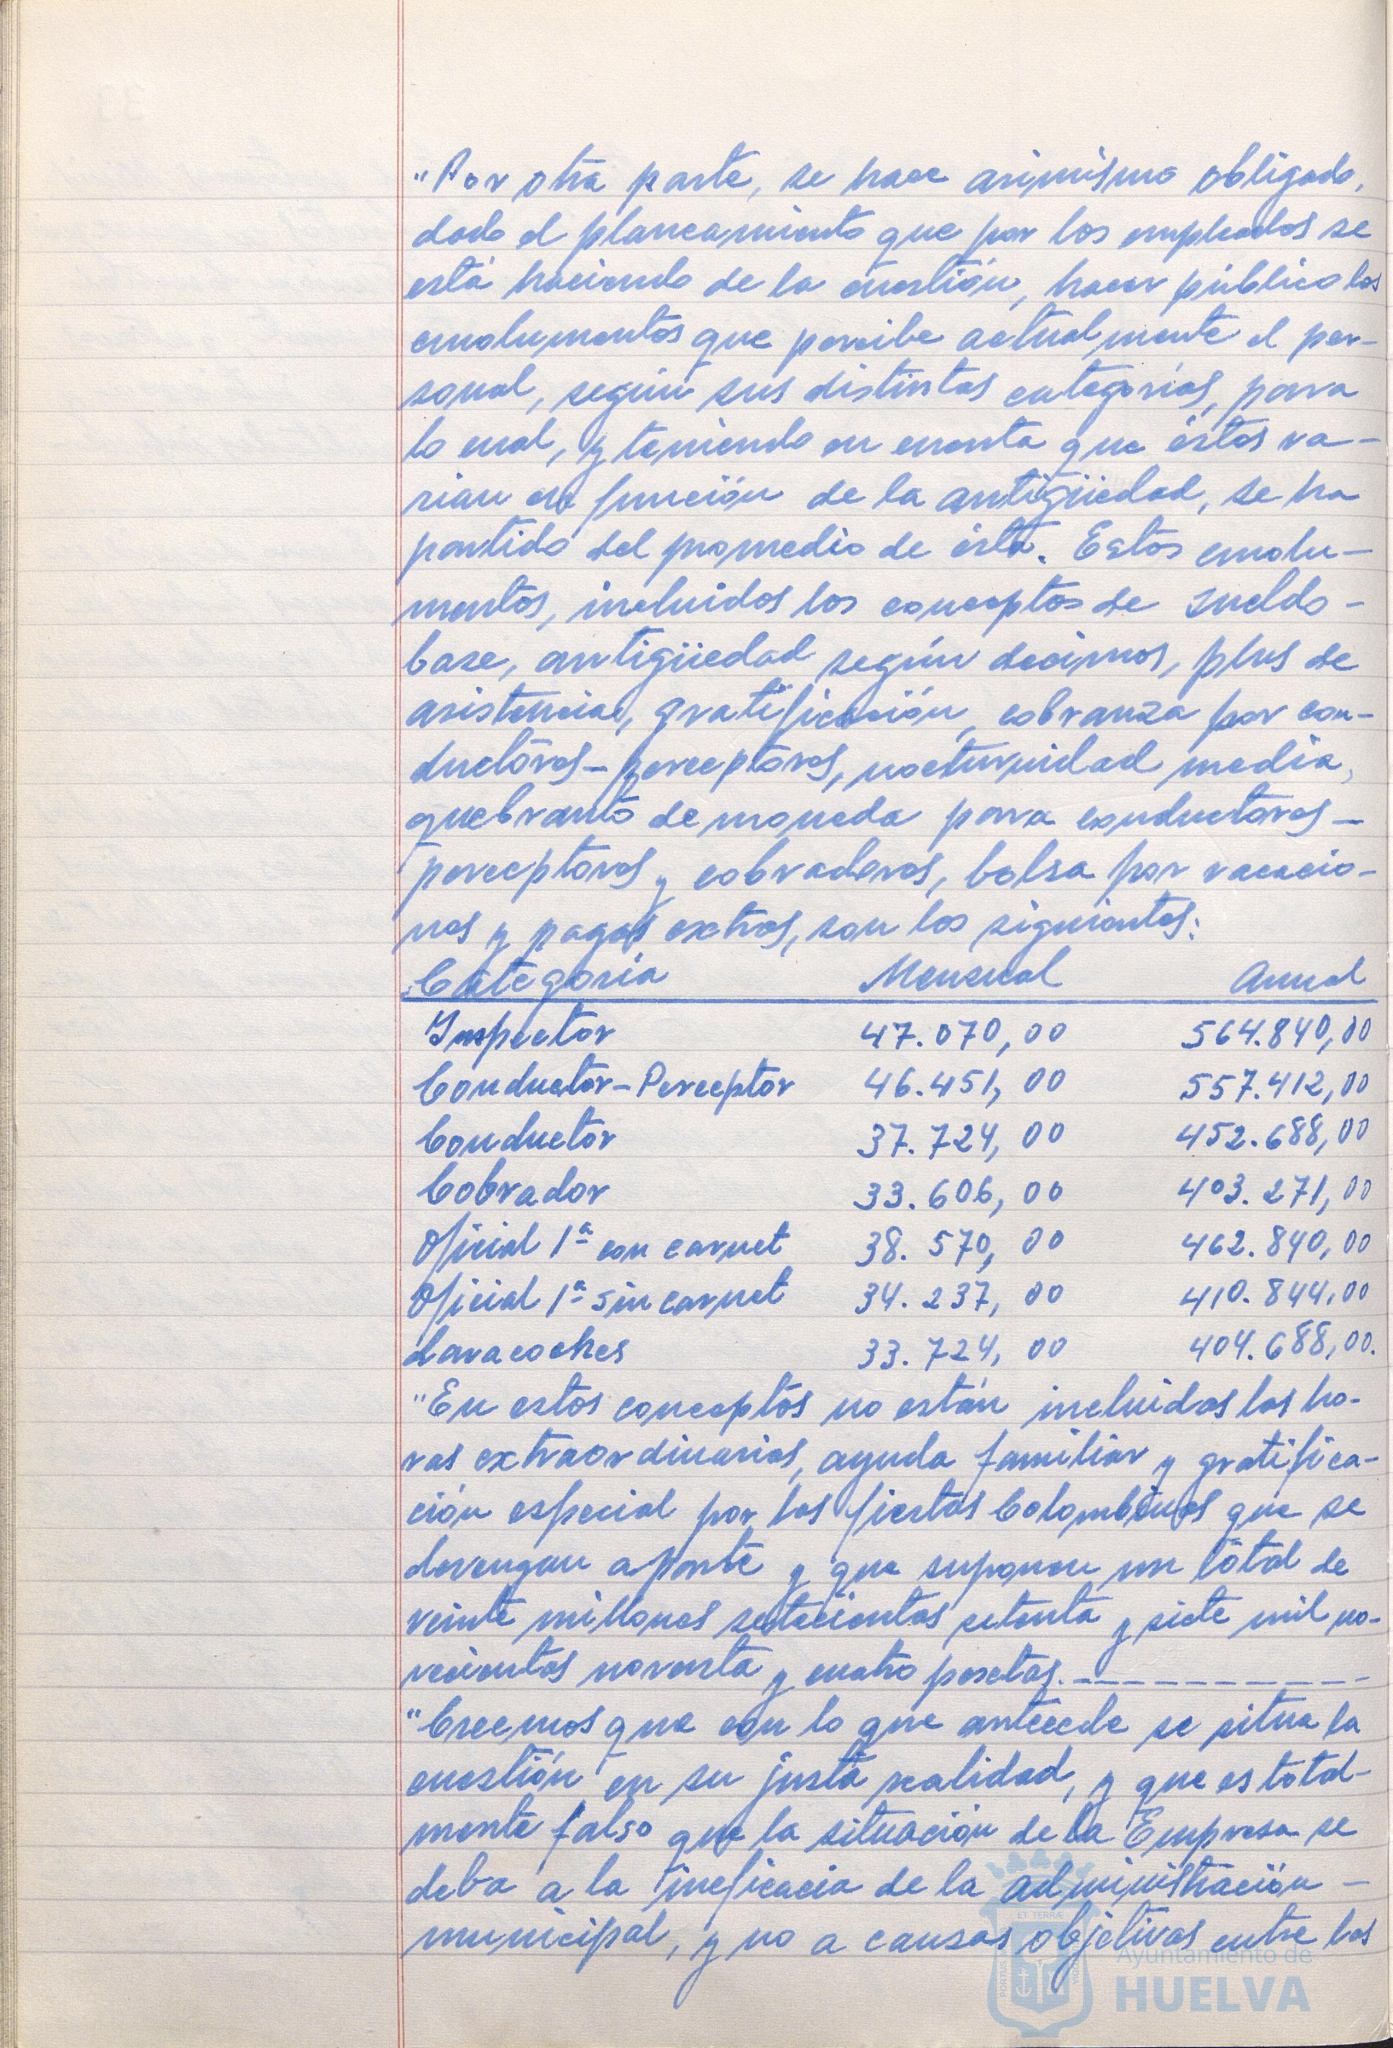 "Por otra parte, se hace asimismo obligado,
dado el planeamiento que por los empleados se
está haciendo de la cuestión, hacer público los
emolumentos que percibe actualmente el per-
sonal, según sus distintas categorías, para
lo cual, y teniendo en cuenta que éstos va-
rian en función de la antigüedad, se ha
partido del promedio de ésta. Estos emolu-
mentos, incluidos los conceptos de sueldo-
base, antigüedad según decimos, plus de
asistencia, gratificación, cobranza por con-
ductores-perceptores, nocturnidad media,
quebranto de moneda para conductores-
perceptores y cobradores, bolsa por vacacio-
nes y pagas extras, son los siguientes:
Categoría Mensual Anual
Inspector 47.070,00 564.840,00
Conductor-Perceptor 46.451,00 557.412,00
Conductor 37.724,00 452.688,00
Cobrador 33.606,00 403.271,00
Oficial 1ª con carnet 38.570,00 462.840,00
Oficial 1ª sin carnet 34.237,00 410.844,00
Lavacoches 33.724,00 404.688,00.
"En estos conceptos no están incluidas las ho-
ras extraordinarias, ayuda familiar y gratifica-
ción especial por las fiestas Colombinas que se
devengan aparte y que suponen un total de
veinte millones setecientas setenta y siete mil no-
vecientas noventa y cuatro pesetas.
"Creemos que con lo que antecede se situa la
cuestión en su justa realidad, y que es total-
mente falso que la situación de la Empresa se
deba a la ineficacia de la administración -
municipal, y no a causas objetivas entre las
ET TERRÆ
Ayuntamiento de
HUELVA